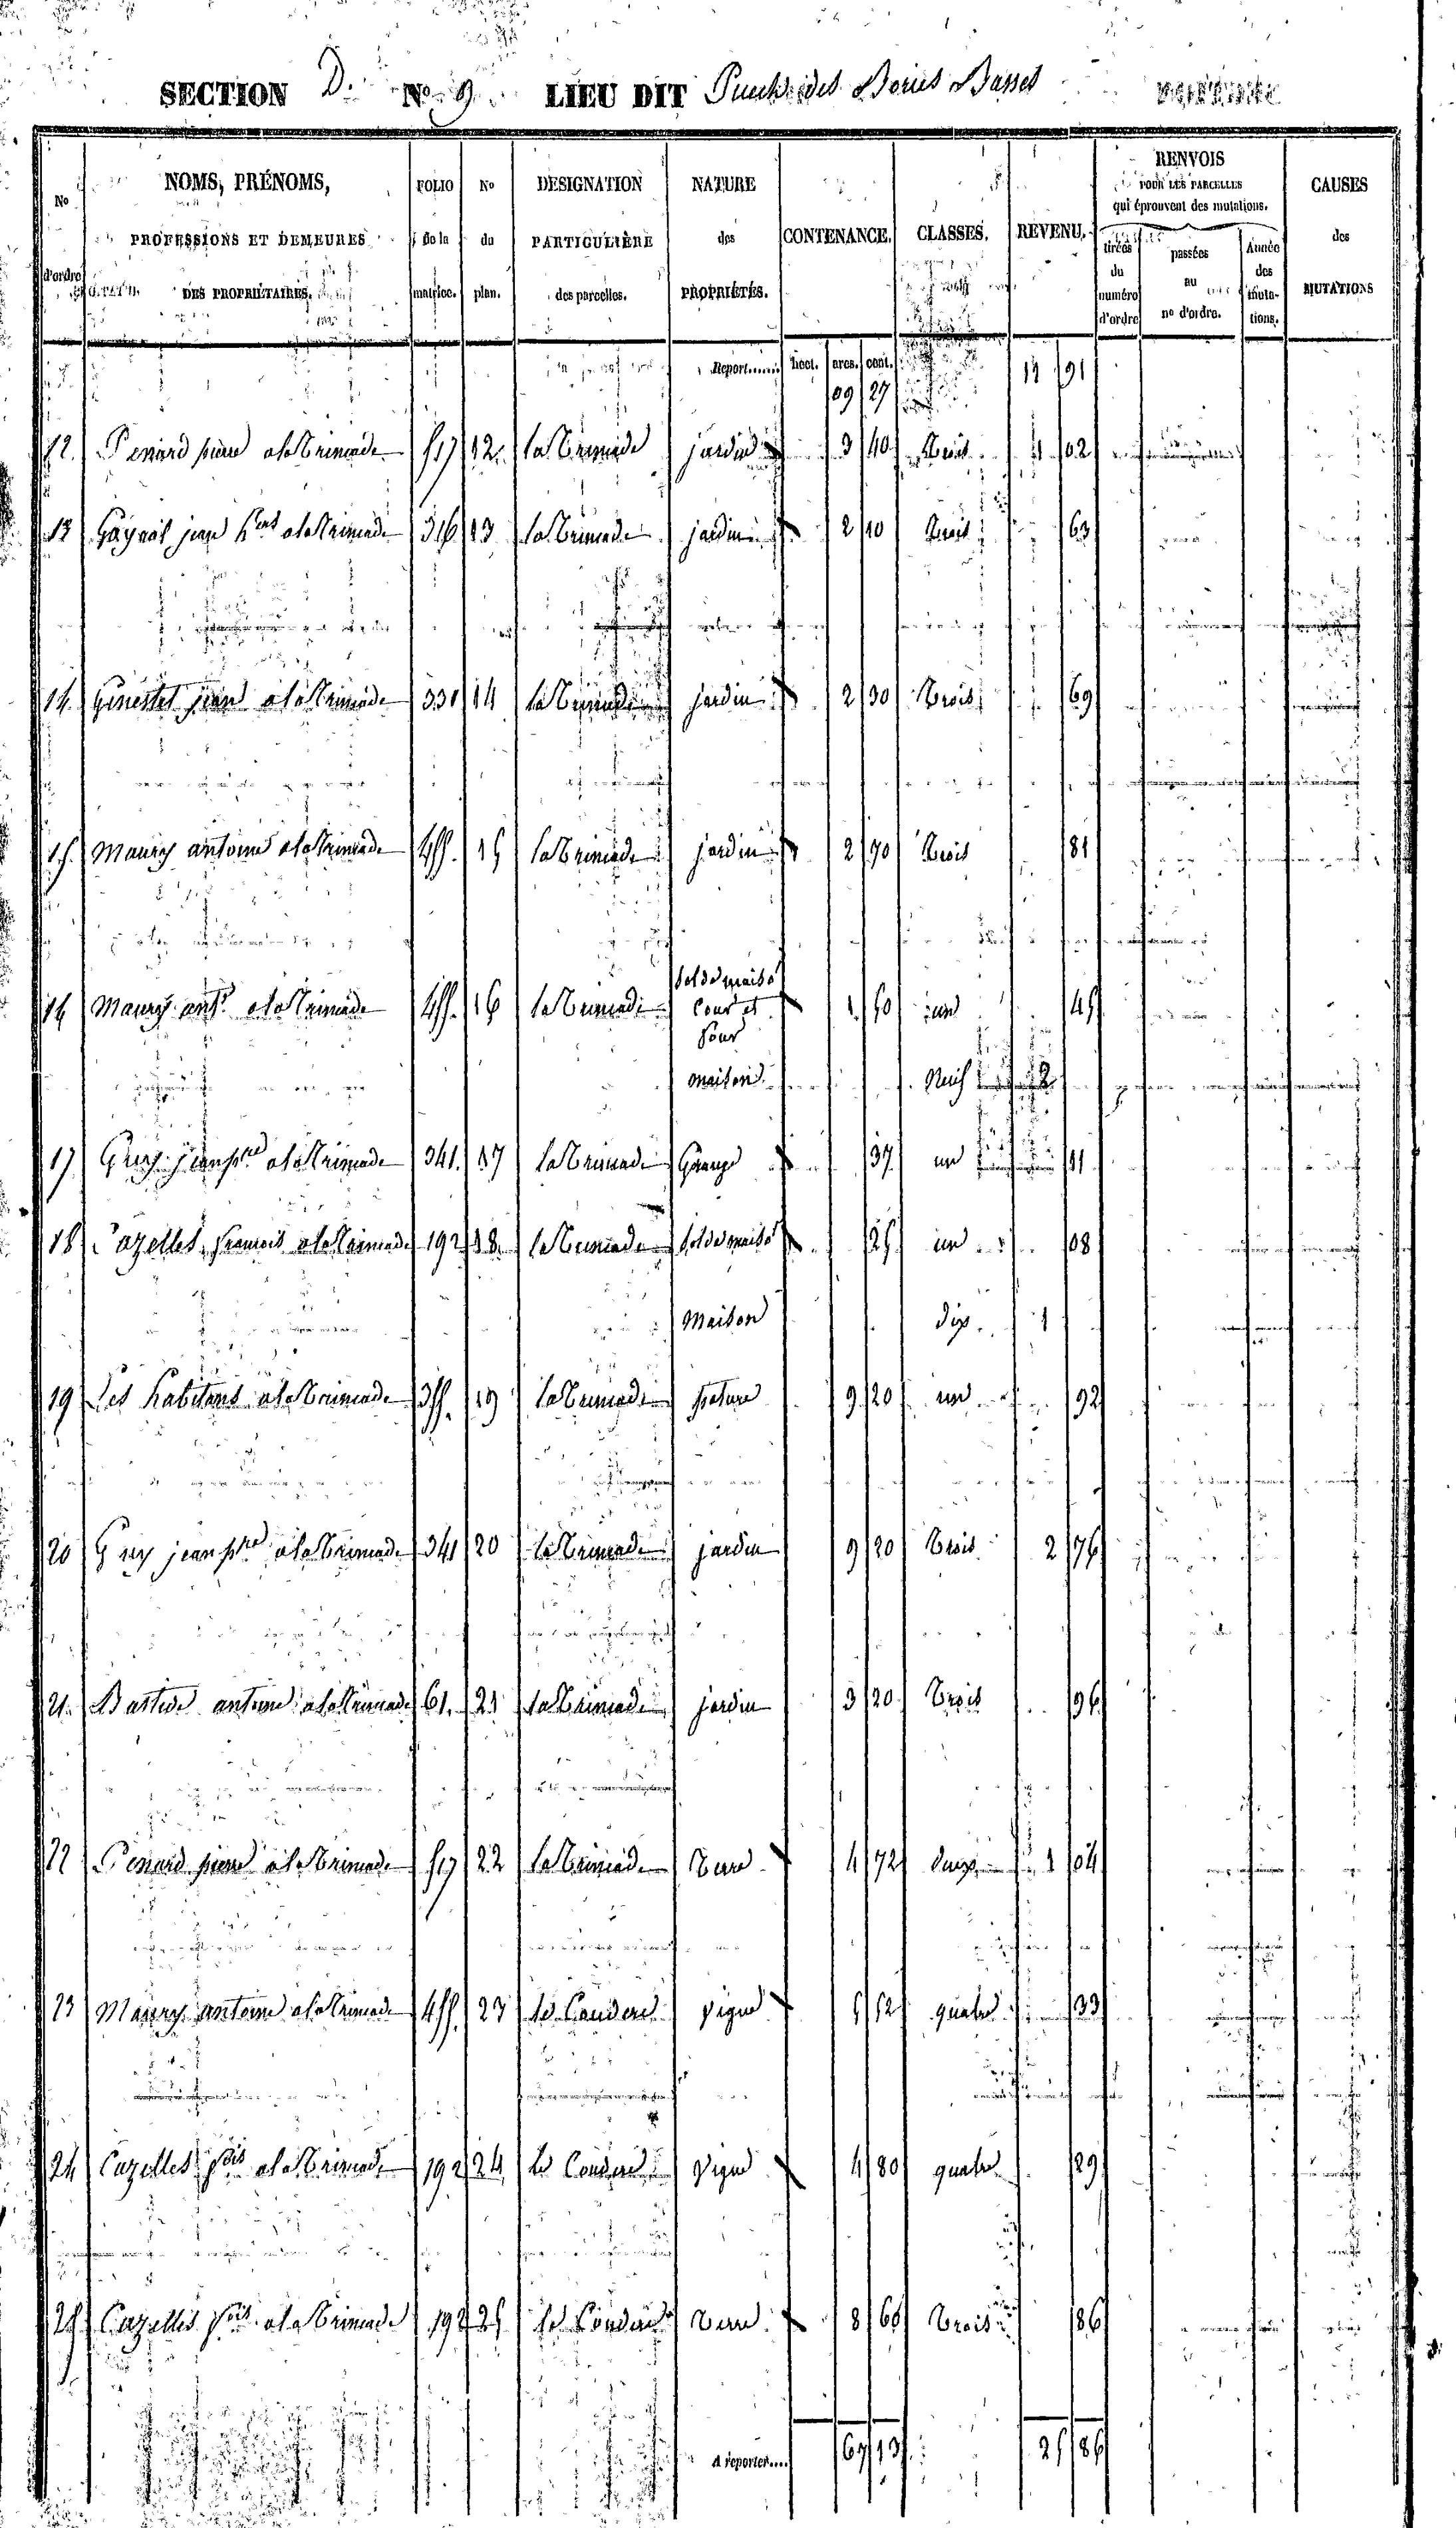 SECTION D. No 9. LIEU DIT Puech des Bories Basses
No d'ordre
NOMS, PRÉNOMS, PROFESSIONS ET DEMEURES DES PROPRIÉTAIRES.
FOLIO de la matrice.
No du plan.
DESIGNATION PARTICULIÈRE des parcelles.
NATURE des PROPRIÉTÉS.
CONTENANCE.
CLASSES.
REVENU.
RENVOIS POUR LES PARCELLES qui éprouvent des mutations.
tirées du numéro d'ordre
passées au no d'ordre.
Année des mutations.
CAUSES des MUTATIONS
Report...... hect. ares. cent.
09 27 11 91
12. Penard pierre a la Trimade 517 12. la Trimade jardin 3 40 Trois 1 02
13 Gaynal jean a la Trimade 316 13 la Trimade jardin 2 10 Trois 63
14. Ginestet jean a la Trimade 331 14 la Trimade jardin 2 30 Trois 69
15. Maury antoine a la Trimade 455. 15 la Trimade jardin 2 70 Trois 81
16 Maury ant.e a la Trimade 455. 16 la Trimade Sol de maiso Cour et four 1 50 une 45
maison Neuf
17 Guy jean p.re a la Trimade 341. 17 la Trimade Grange 37 un 11
18 Cazelles francois a la Trimade 192 18. la Trimade Sol de maiso 25 un 08
Maison dix. 1
19 Les habitans a la Trimade 355. 19 la Trimade pature 9 20 un 92
20 Guy jean p.re a la Trimade 341 20 la Trimade jardin 9 20 Trois 2 76
21. Bastide antoine a la Trimade 61. 21 la Trimade jardin 3 20 Trois 96
22 Penard pierre a la Trimade 517 22 la Trimade Terre 4 72 deux 1 04
23 Maury antoine a la Trimade 455. 23 le Couderc vigne 5 52 quatre 33
24 Cazelles f.ois a la Trimade 192 24 le Couderc vigne 4 80 quatre 29
25 Cazelles f.ois a la Trimade 192 25 le Couderc Terre 8 60 Trois 86
A reporter.... 67 13 25 86